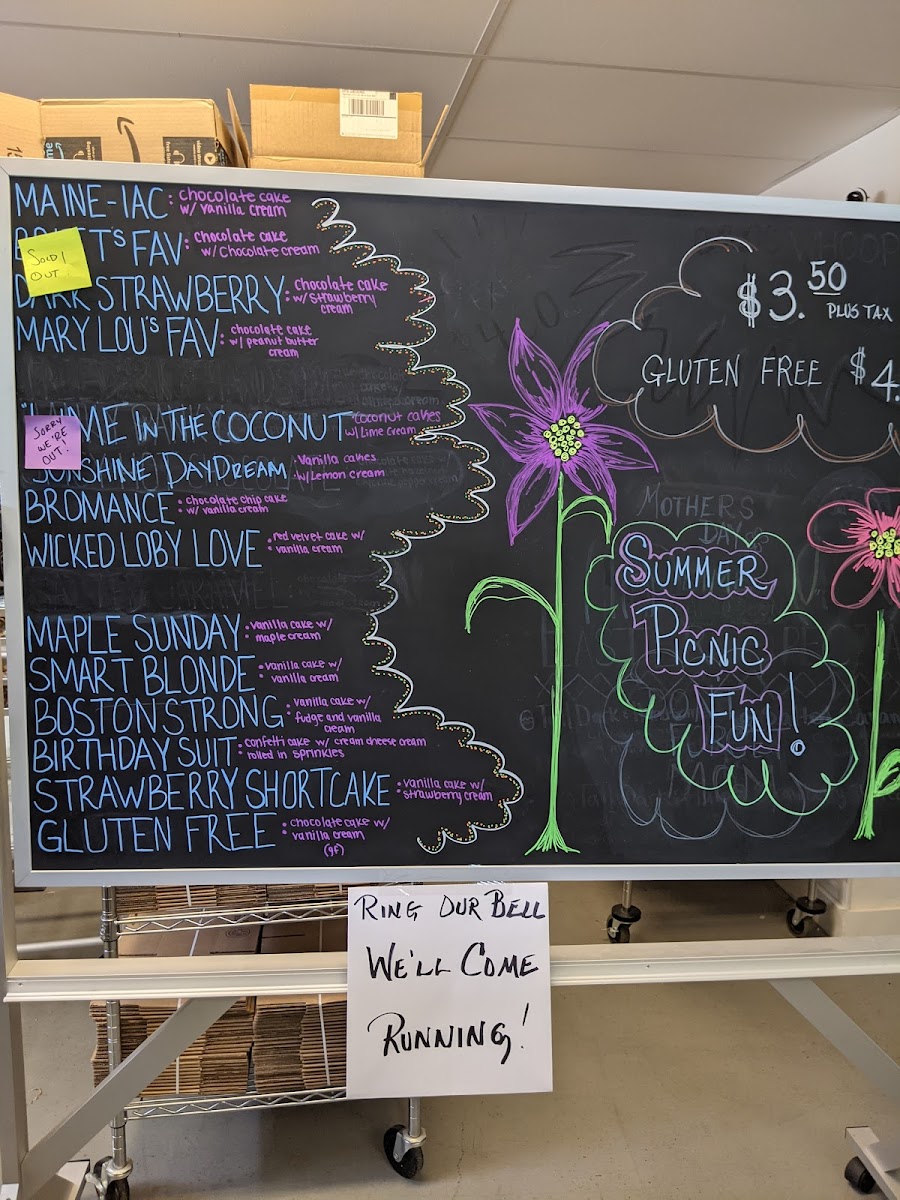 MAINE-IAC: chocolate cake
w/ vanilla cream
T'S FAV: chocolate cake
w/ chocolate cream
SOLD!
OUT
DARK STRAWBERRY: chocolate cake
w/ strawberry
cream
MARY LOU'S FAV: chocolate cake
w/ peanut butter
cream
SORRY
WE'RE
OUT!
IME IN THE COCONUT" coconut cakes
w/ lime cream
SUNSHINE DAYDREAM: vanilla cakes
w/ lemon cream
BROMANCE: chocolate chip cake
w/ vanilla cream
WICKED LOBY LOVE: red velvet cake w/
vanilla cream
MAPLE SUNDAY: vanilla cake w/
maple cream
SMART BLONDE: vanilla cake w/
vanilla cream
BOSTON STRONG: vanilla cake w/
fudge and vanilla
cream
BIRTHDAY SUIT: confetti cake w/ cream cheese cream
rolled in sprinkles
STRAWBERRY SHORTCAKE: vanilla cake w/
strawberry cream
GLUTEN FREE: chocolate cake w/
vanilla cream
(gf)
$3.50
PLUS TAX
GLUTEN FREE $4.
MOTHERS
DAY
SUMMER
PICNIC
FUN!
RING OUR BELL
WE'LL COME
RUNNING!